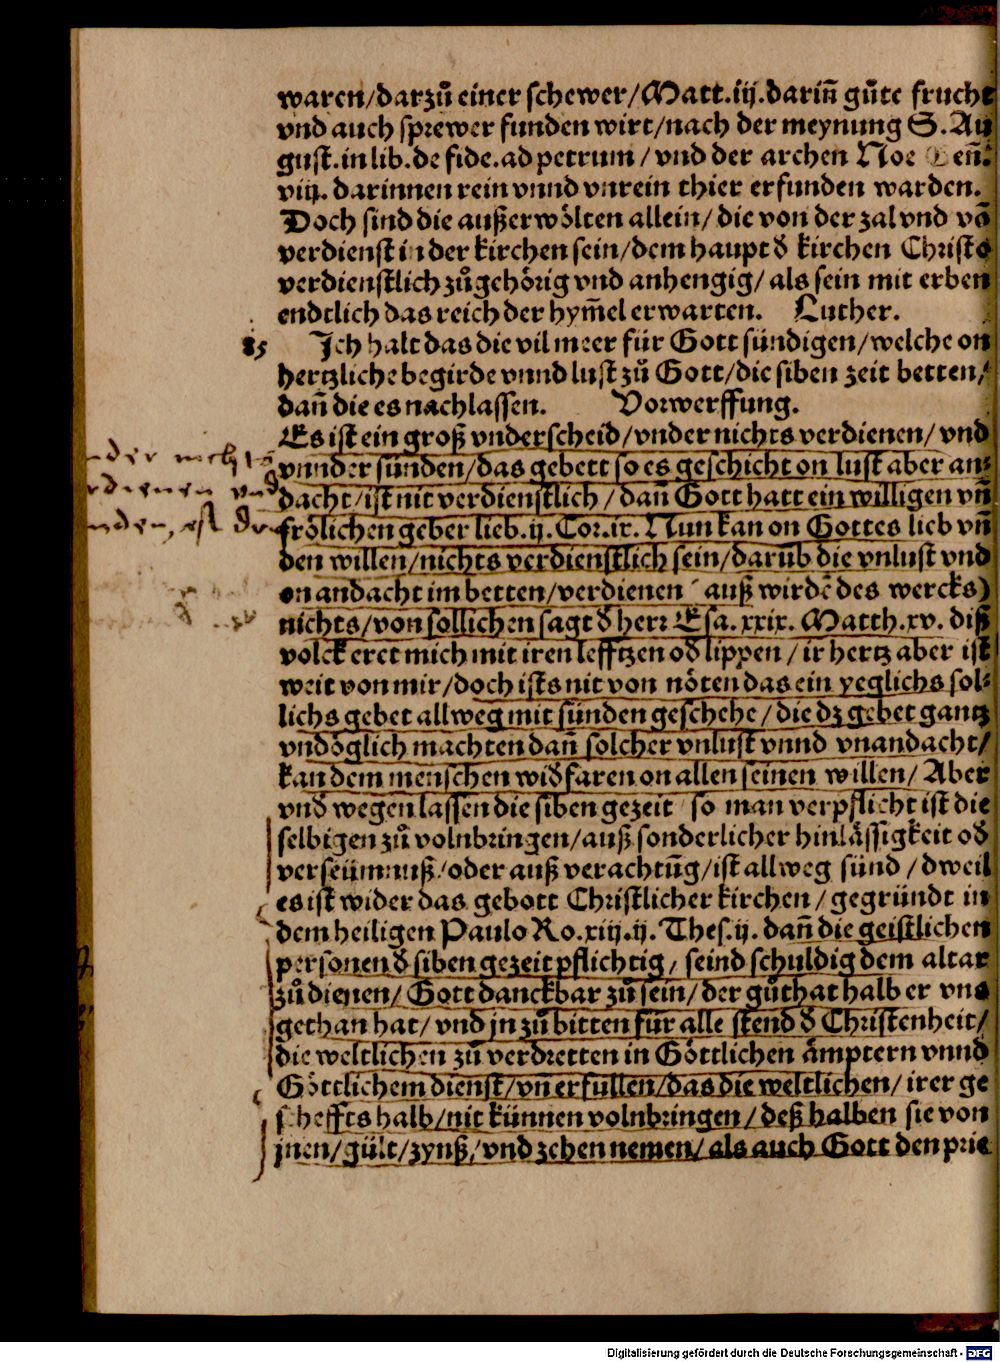 waren/darzů einer schewer/Matt.iij.dariñ gůte frucht
vnd auch sprewer funden wirt/nach der meynung S.Au
gust.in lib.de fide.ad petrum/vnd der archen Noe Geñ.
viij. darinnen rein vnnd vnrein thier erfunden warden.
Doch sind die außerwölten allein/die von der zal vnd vō
verdienst in der kirchen sein/dem haupt ð kirchen Christo
verdienstlich zůgehörig vnd anhengig/als sein mit erben
endtlich das reich der hym̃el erwarten. Luther.
85 Ich halt das die vil meer für Gott sündigen/welche on
hertzliche begirde vnnd lust zů Gott/die siben zeit betten/
dañ die es nachlassen. Vorwerffung.
Es ist ein groß vnderscheid/vnder nichts verdienen/vnd
vnnder sünden/das gebett so es geschicht on lust aber an-
dacht/ist nit verdienstlich/dañ Gott hatt ein willigen vñ
frölichen geber lieb.ij.Cor.ix.Nun kan on Gottes lieb vñ
den willen/nichts verdienstlich sein/darüb die vnlust vnd
on andacht im betten/verdienen auß wirdē des wercks)
nichts/von sollichen sagt ð herr Esa.xxix. Matth.xv. diß
volck eret mich mit iren lefftzen oð lippen/ir hertz aber ist
weit von mir/doch ists nit von nöten das ein yeglichs sol-
lichs gebet allweg mit sünden geschehe/die dz gebet gantz
vndöglich machten dañ solcher vnlust vnnd vnandacht/
kan dem menschen widfaren on allen seinen willen/Aber
vnð wegen lassen die siben gezeit so man verpflicht ist die
selbigen zů volnbringen/auß sonderlicher hinlässigkeit oð
verseümnuß/oder auß verachtūg/ist allweg sünd/dweil
es ist wider das gebott Christlicher kirchen/gegründt in
dem heiligen Paulo Ro.xiij.ij. Thes.ij. dañ die geistlichen
personen ð siben gezeit pflichtig/seind schuldig dem altar
zů dienen/Gott danckbar zů sein/der gůthat halb er vns
gethan hat/vnd jn zů bitten für alle stend ð Christenheit/
die weltlichen zů verdretten in Göttlichen ämptern vnnd
Göttlichem dienst/vñ erfüllen/das die weltlichen/irer ge
scheffts halb/nit künnen volnbringen/deß halben sie von
jnen/gült/zynß/vnd zehen nemen/als auch Gott den prie
Digitalisierung gefördert durch die Deutsche Forschungsgemeinschaft - DFG